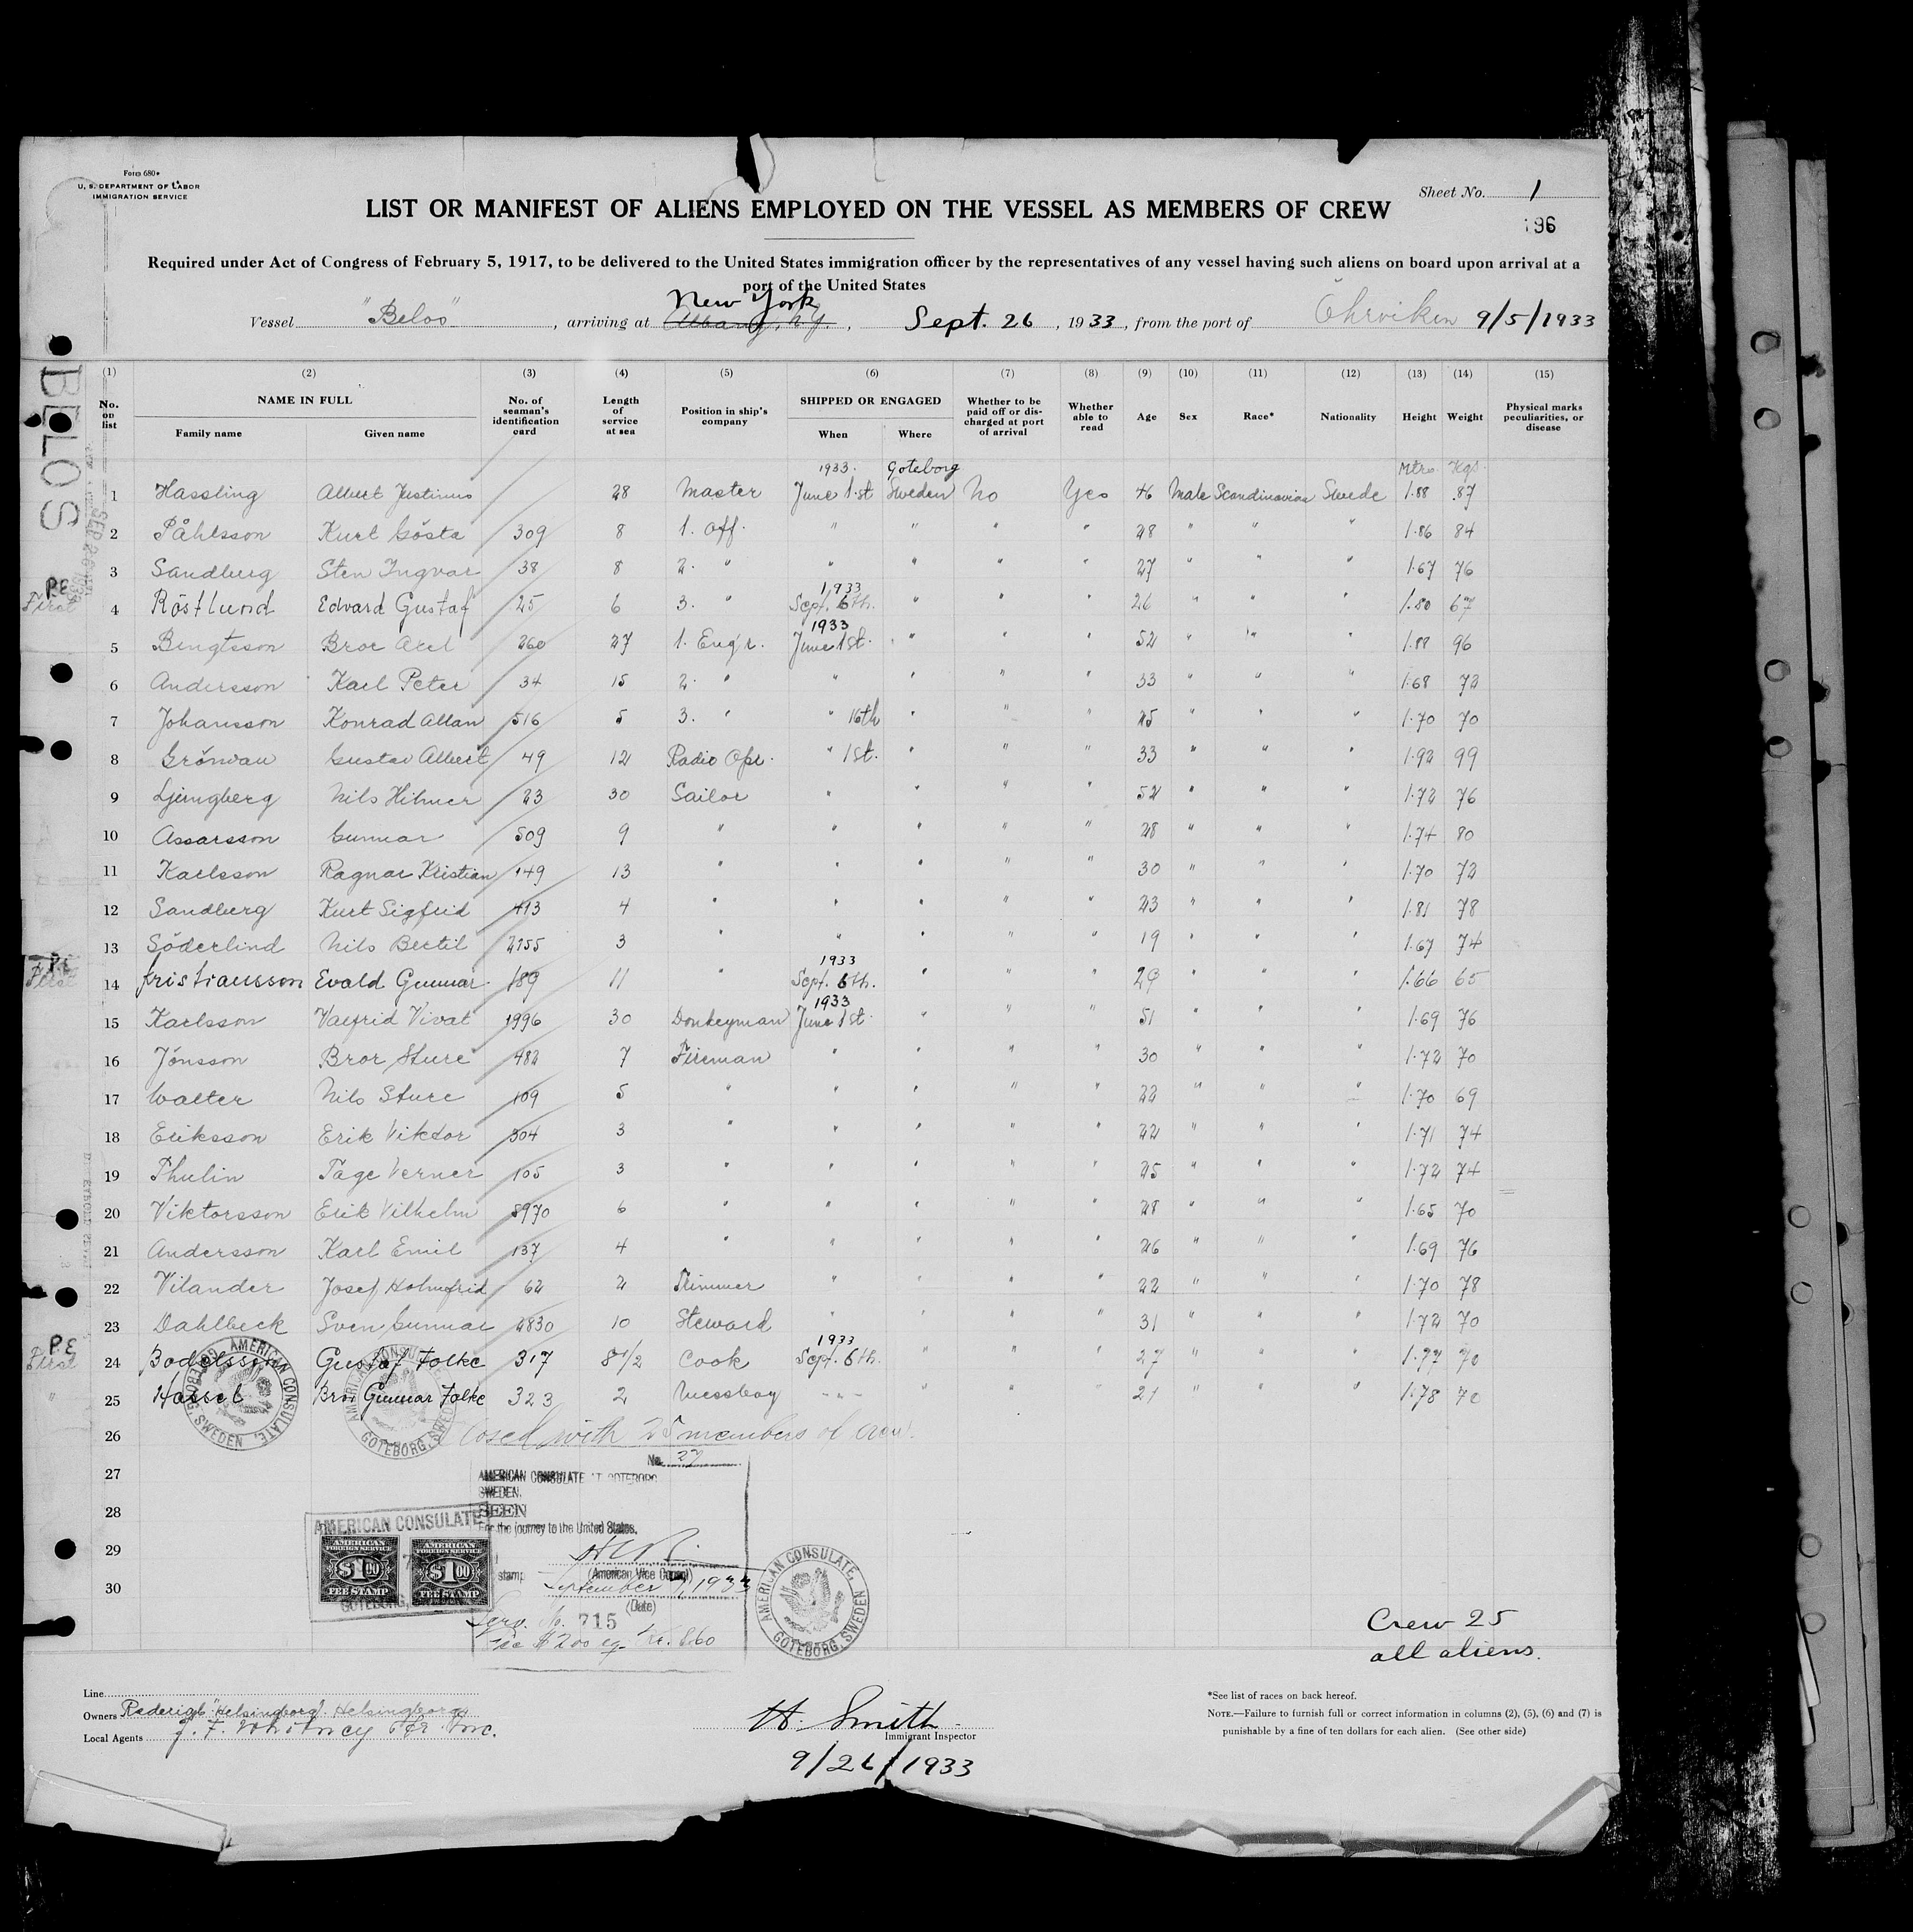 Form 680
U. S. DEPARTMENT OF LABOR
IMMIGRATION SERVICE
Sheet No. 1
LIST OR MANIFEST OF ALIENS EMPLOYED ON THE VESSEL AS MEMBERS OF CREW
196
Required under Act of Congress of February 5, 1917, to be delivered to the United States immigration officer by the representatives of any vessel having such aliens on board upon arrival at a
port of the United States
New York
Vessel "Belos", arriving at Albany, N.Y., Sept. 26, 1933, from the port of 9/5/1933
BELOS
(1) (2) (3) (4) (5) (6) (7) (8) (9) (10) (11) (12) (13) (14) (15)
No. on list NAME IN FULL Family name Given name No. of seaman's identification card Length of service at sea Position in ship's company SHIPPED OR ENGAGED When Where Whether to be paid off or discharged at port of arrival Whether able to read Age Sex Race* Nationality Height Weight Physical marks peculiarities, or disease
1933. Goteborg Mtrs. Kgs.
1 Hassling Albert Justinus 28 Master June 1st Sweden No Yes 46 Male Scandinavian Swede 1.88 87
2 Påhlsson Kurt Gösta 309 8 1. Off. " " " " 28 " " " 1.86 84
3 Sandberg Sten Ingvar 38 8 2. " " " " " 27 " " " 1.67 76
PE 1933
First 4 Röstlund Edvard Gustaf 25 6 3. " Sept. 6th. " " " 26 " " " 1.80 67
1933
5 Bengtsson Bror Axel 260 27 1. Eng'r. June 1st. " " " 52 " " " 1.88 96
6 Andersson Karl Peter 34 15 2. " " " " " 33 " " " 1.68 72
7 Johansson Konrad Allan 516 5 3. " " 16th " " " 25 " " " 1.70 70
8 Grönvau Gustav Albert 49 12 Radio Opr. " 1st. " " " 33 " " " 1.92 99
9 Ljungberg Nils Hilmer 23 30 Sailor " " " " 52 " " " 1.72 76
10 Assarsson Gunnar 509 9 " " " " " 28 " " " 1.74 80
11 Karlsson Ragnar Kristian 149 13 " " " " " 30 " " " 1.70 72
12 Sandberg Kurt Sigfrid 413 4 " " " " " 23 " " " 1.81 78
13 Söderlind Nils Bertil 2155 3 " " " " " 19 " " " 1.67 74
PE 1933
First 14 Kristiansson Evald Gunnar 189 11 " Sept. 6th. " " " 29 " " " 1.66 65
1933
15 Karlsson Valfrid Vivat 1996 30 Donkeyman June 1st. " " " 51 " " " 1.69 76
16 Jönsson Bror Sture 482 7 Fireman " " " " 30 " " " 1.72 70
17 Walter Nils Sture 109 5 " " " " " 22 " " " 1.70 69
18 Eriksson Erik Viktor 304 3 " " " " " 22 " " " 1.71 74
19 Thulin Tage Verner 105 3 " " " " " 25 " " " 1.72 74
20 Viktorsson Erik Vilhelm 8970 6 " " " " " 28 " " " 1.65 70
21 Andersson Karl Emil 137 4 " " " " " 26 " " " 1.69 76
22 Vilander Josef Holmfrid 62 2 Trimmer " " " " 22 " " " 1.70 78
23 Dahlbeck Sven Gunnar 2830 10 Steward " " " " 31 " " " 1.72 70
PE 1933
First 24 Bodelsson Gustaf Folke 317 8 1/2 Cook Sept. 6th. " " " 27 " " " 1.77 70
" 25 Hassel Bror Gunnar Folke 323 2 Messboy - " - " " " 21 " " " 1.78 70
26 Closed with 25 members of crew.
27
28
29
30
AMERICAN CONSULATE, GOTEBORG, SWEDEN
AMERICAN CONSULATE, GOTEBORG, SWEDEN
No. 27
AMERICAN CONSULATE AT GOTEBORG
SWEDEN.
SEEN
For the journey to the United States.
(American Vice Consul)
stamp September 7, 1933
(Date)
Serv. No. 715
Fee $2.00 eq. Kr. 8.60
AMERICAN CONSULATE
AMERICAN FOREIGN SERVICE $1.00 FEE STAMP
AMERICAN FOREIGN SERVICE $1.00 FEE STAMP
GOTEBORG, SWEDEN
AMERICAN CONSULATE, GOTEBORG, SWEDEN
Crew 25
all aliens.
Line
Owners Rederiab. "Helsingborg". Helsingborg
Local Agents J. F. Whitney & Co. Inc.
H. Smith
Immigrant Inspector
9/26/1933
*See list of races on back hereof.
NOTE.—Failure to furnish full or correct information in columns (2), (5), (6) and (7) is
punishable by a fine of ten dollars for each alien. (See other side)